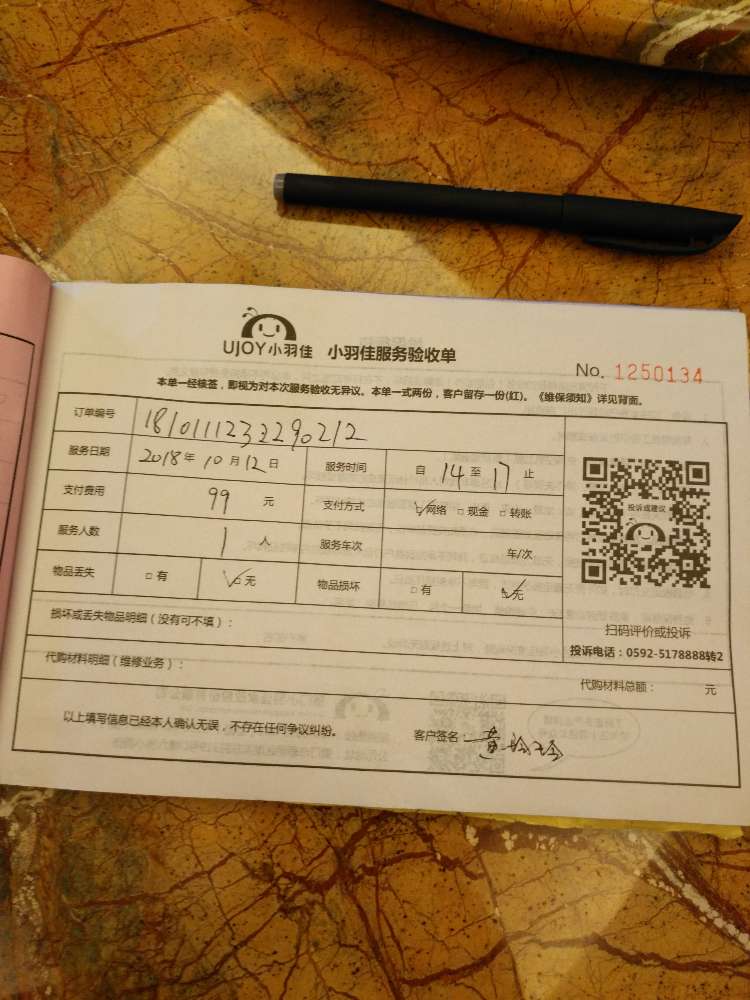 UJOY小羽佳 小羽佳服务验收单
No. 1250134
本单一经核签，即视为对本次服务验收无异议。本单一式两份，客户留存一份(红)。《维保须知》详见背面。
订单编号 18101112332290212
服务日期 2018年10月12日 服务时间 自14至17止
支付费用 99 元 支付方式 ☑网络 □现金 □转账
投诉或建议
服务人数 1 人 服务车次 车/次
物品丢失 □有 ☑无 物品损坏 □有 ☑无
扫码评价或投诉
损坏或丢失物品明细（没有可不填）：
投诉电话：0592-5178888转2
代购材料明细（维修业务）：
代购材料总额： 元
以上填写信息已经本人确认无误，不存在任何争议纠纷。 客户签名：黄